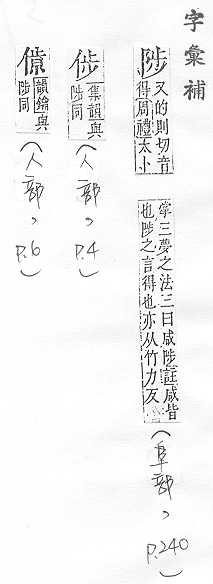 字彙補
陟 又的則切音得周禮太卜掌三夢之法三曰咸陟註咸皆也陟之言得也亦从竹力反(阜部,p.240)
㑥 集韻與陟同(人部,p.4)
韻鑰與陟同(人部,p.6)